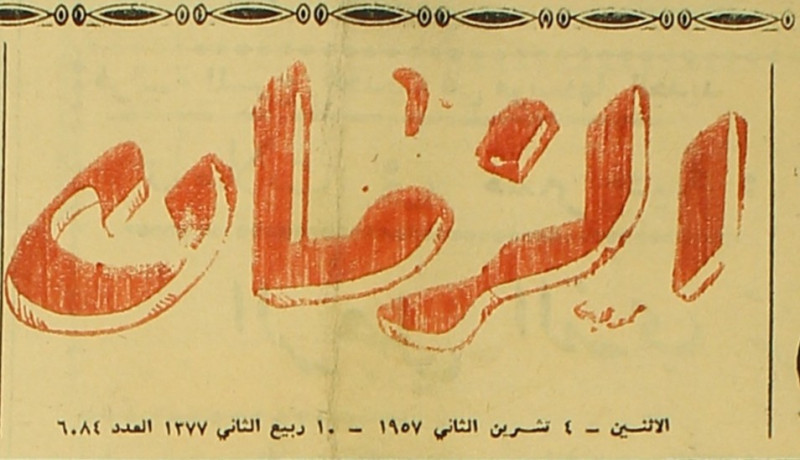 الزمان
الاثنين – ٤ تشرين الثاني ١٩٥٧ – ١٠ ربيع الثاني ١٣٧٧ العدد ٦٠٨٤